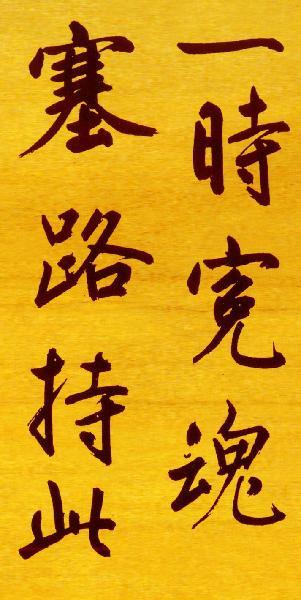 一時寃魂
塞路持此